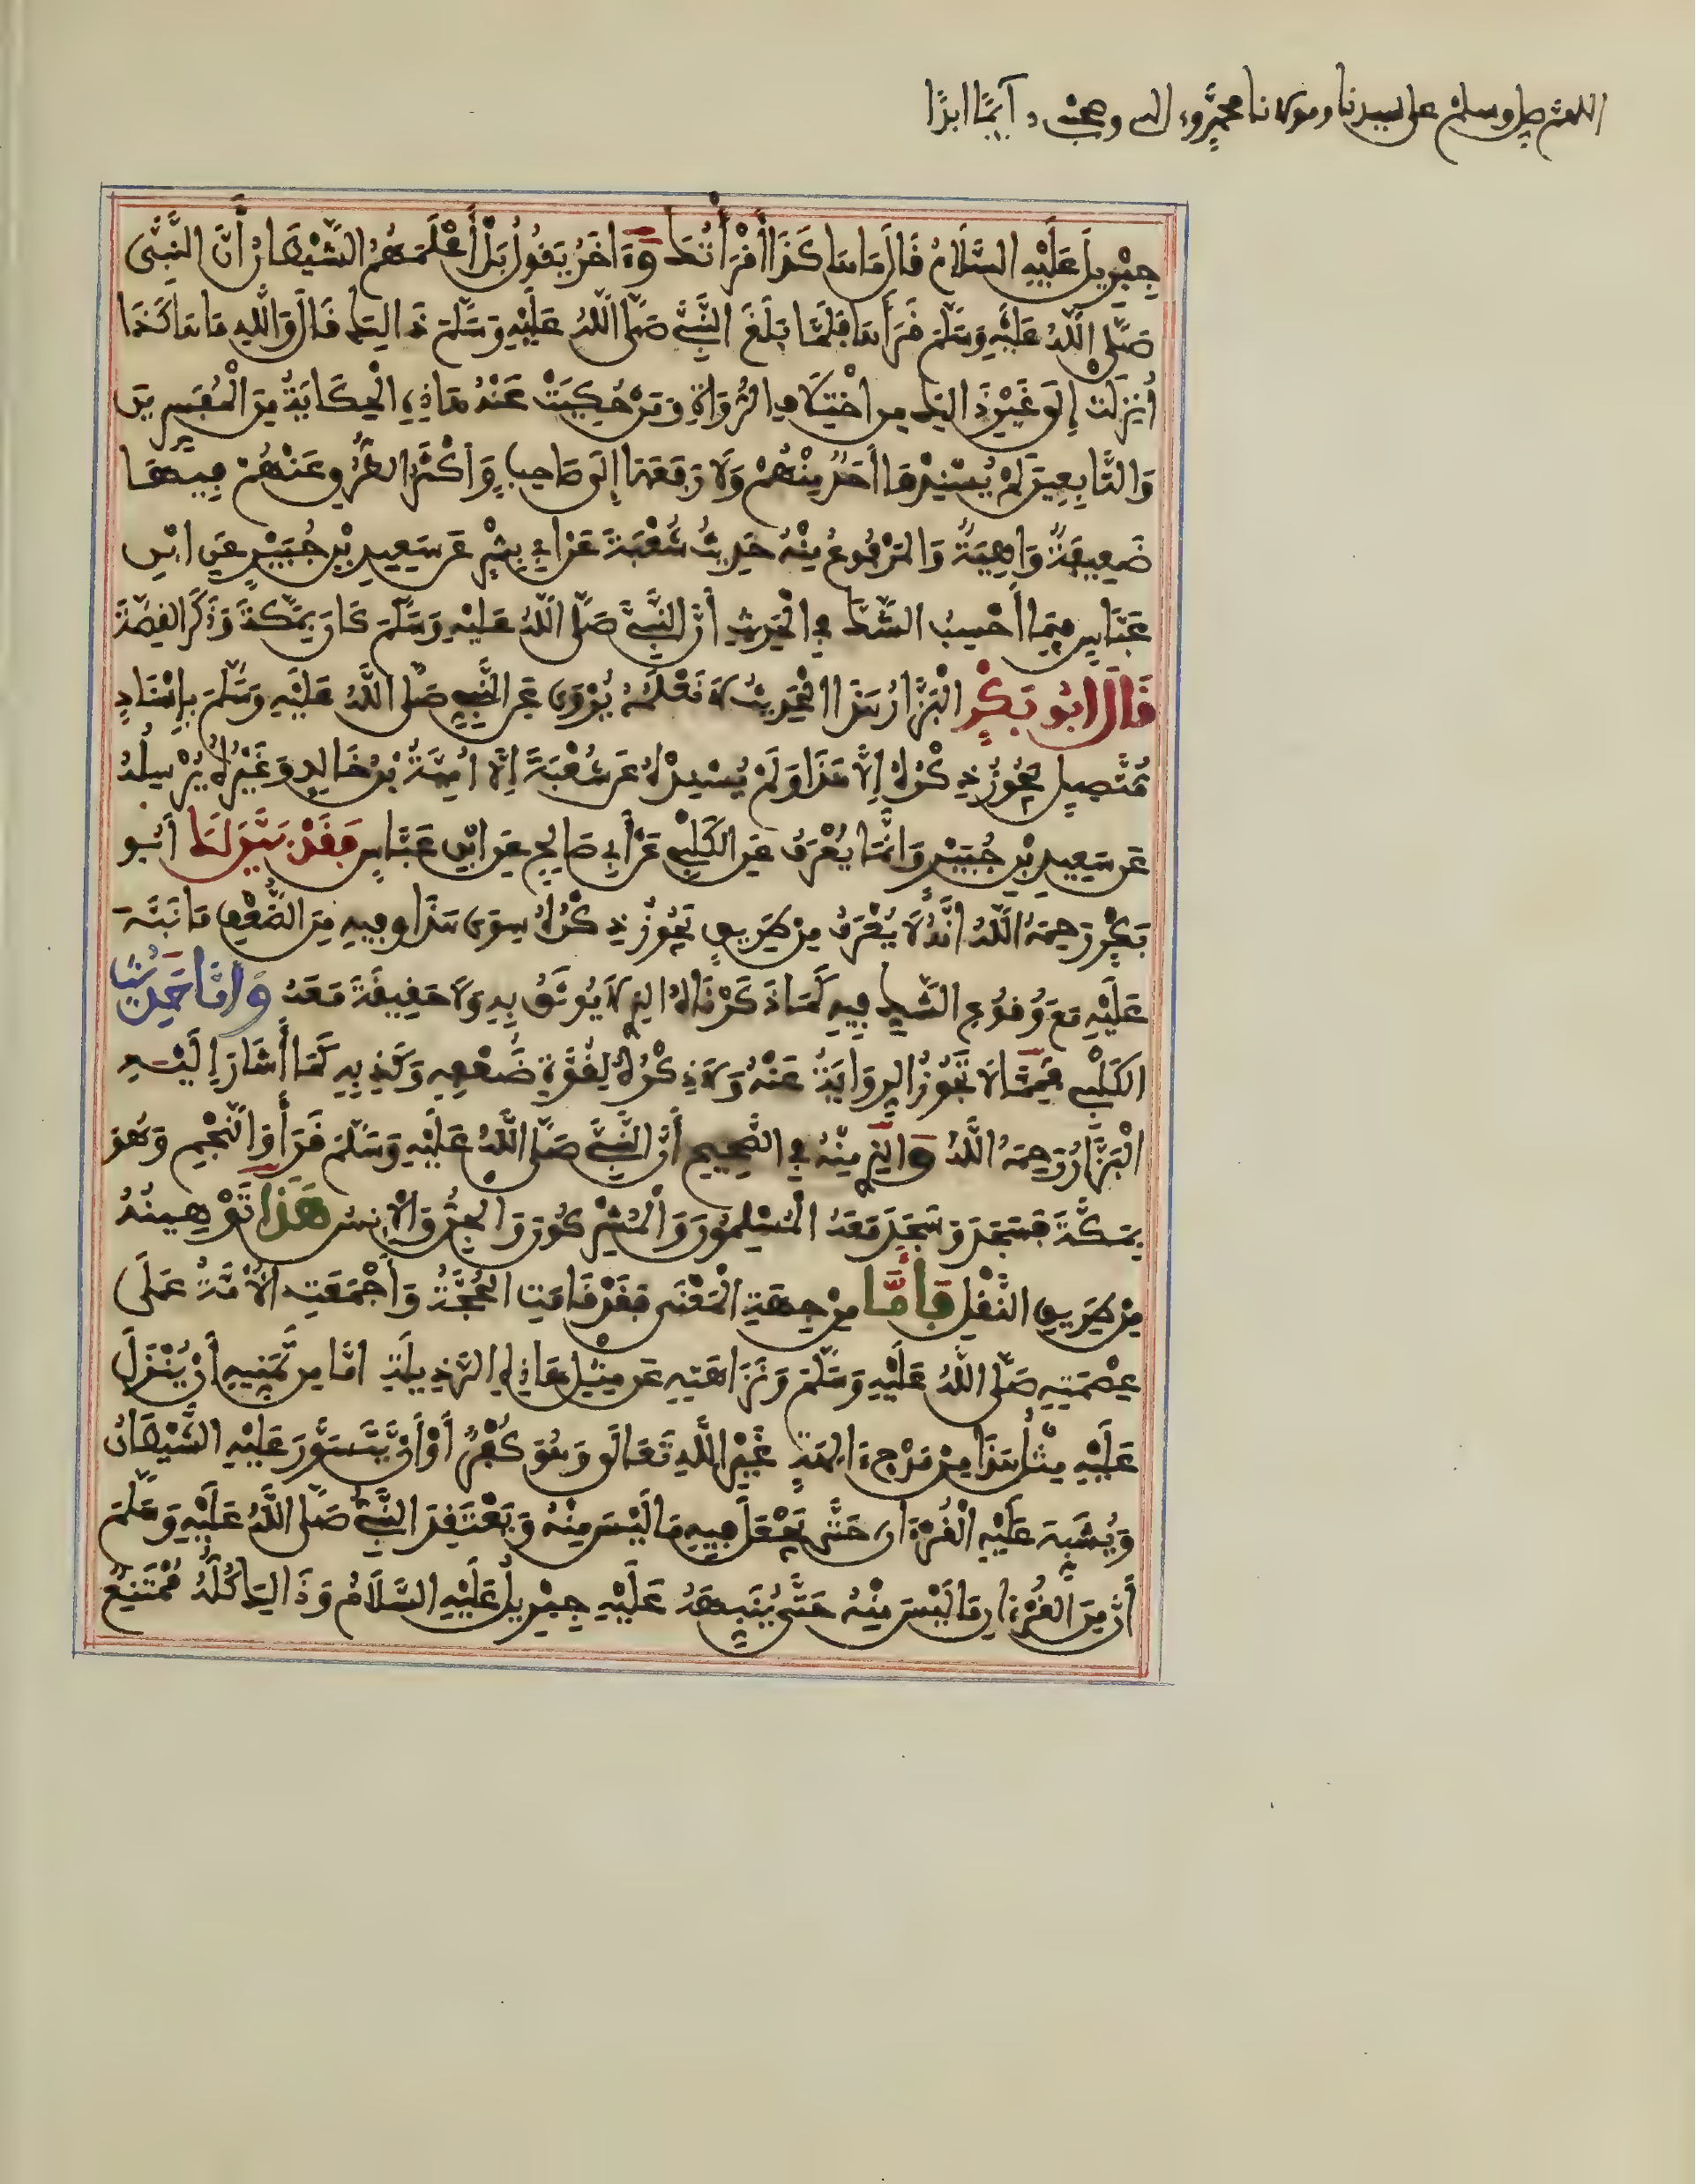 اللهم صل وسلم على سيدنا ومولانا محمد وءاله وصحبه دآئمًا ابدًا
جِبْرِيلَ عَلَيْهِ السَّلَامُ فَالَ مَا هَا كَذَا أَفْرَأْتُكَ وَءَاخَرُ يَفُولُ بَلْ أَعْلَمَهُمُ الشَّيْطَانُ أَنَّ النَّبِىَّ
صَلَّى اللَّهُ عَلَيْهِ وَسَلَّمَ فَرَأَهَا فَلَمَّا بَلَغَ النَّبِىَّ صَلَّى اللَّهُ عَلَيْهِ وَسَلَّمَ ذَالِكَ فَالَ وَاللَّهِ مَا هَا كَذَا
أُنْزِلَتْ إِلَى غَيْرِ ذَالِكَ مِنِ اخْتِلَافِ الرُّوَاةِ وَمَنْ حُكِيَتْ عَنْهُ هَاذِهِ الْحِكَايَةُ مِنَ الْمُفَسِّرِينَ
وَالتَّابِعِينَ لَمْ يُسْنِدْهَا أَحَدٌ مِنْهُمْ وَلَا رَفَعَهَا إِلَى صَاحِبٍ وَأَكْثَرُ الطُّرُقِ عَنْهُمْ فِيهَا
ضَعِيفَةٌ وَاهِيَةٌ وَالْمَرْفُوعُ مِنْهُ حَدِيثُ شُعْبَةَ عَنْ أَبِي بِشْرٍ عَنْ سَعِيدِ بْنِ جُبَيْرٍ عَنِ ابْنِ
عَبَّاسٍ فِيمَا أَحْسِبُ الشَّكُّ فِي الْحَدِيثِ أَنَّ النَّبِيَّ صَلَّى اللَّهُ عَلَيْهِ وَسَلَّمَ كَانَ بِمَكَّةَ وَذَكَرَ الْفِصَّةَ
فَالَ ابُو بَكْرٍ الْبَزَّارُ هَذَا الْحَدِيثُ لَا نَعْلَمُهُ يُرْوَى عَنِ النَّبِيِّ صَلَّى اللَّهُ عَلَيْهِ وَسَلَّمَ بِإِسْنَادٍ
مُتَّصِلٍ يَجُوزُ ذِكْرُهُ إِلَّا هَذَا وَلَمْ يُسْنِدْهُ عَنْ شُعْبَةَ إِلَّا أُمَيَّةُ بْنُ خَالِدٍ وَغَيْرُهُ يُرْسِلُهُ
عَنْ سَعِيدِ بْنِ جُبَيْرٍ وَإِنَّمَا يُعْرَفُ عَنِ الْكَلْبِيِّ عَنْ أَبِي صَالِحٍ عَنِ ابْنِ عَبَّاسٍ فَفَدْ بَيَّنَ لَنَا أَبُو
بَكْرٍ رَحِمَهُ اللَّهُ انَّهُ لَا يُعْرَفُ مِنْ طَرِيقٍ يَجُوزُ ذِكْرُهُ سِوَى هَذَا وَفِيهِ مِنَ الضُّعْفِ مَا نَبَّهَ
عَلَيْهِ مَعَ وُفُوعِ الشَّكِّ فِيهِ كَمَا ذَكَرْنَاهُ الذِي لَا يُوثَقُ بِهِ وَلَا حَفِيفَةَ مَعَهُ وَأَمَّا حَدِيثُ
الْكَلْبِيِّ فَمِمَّا لَا تَجُوزُ الرِّوَايَةُ عَنْهُ وَلَا ذِكْرُهُ لِفُوَّةِ ضَعْفِهِ وَكَذِبِهِ كَمَا أَشَارَ إِلَيْهِ
الْبَزَّارُ رَحِمَهُ اللَّهُ وَالذِي مِنْهُ فِي الصَّحِيحِ أَنَّ النَّبِيَّ صَلَّى اللَّهُ عَلَيْهِ وَسَلَّمَ فَرَأَ وَالنَّجْمِ وَهُوَ
بِمَكَّةَ فَسَجَدَ وَسَجَدَ مَعَهُ الْمُسْلِمُونَ وَالْمُشْرِكُونَ وَالْجِنُّ وَالْإِنْسُ هَذَا تَوْهِينُهُ
مِنْ طَرِيقِ النَّفْلِ فَأَمَّا مِنْ جِهَةِ الْمَعْنَى فَفَدْ فَامَتِ الْحُجَّةُ وَأَجْمَعَتِ الْأُمَّةُ عَلَى
عِصْمَتِهِ صَلَّى اللَّهُ عَلَيْهِ وَسَلَّمَ وَنَزَاهَتِهِ عَنْ مِثْلِ هَاذِهِ الرَّذِيلَةِ امَّا مِنْ تَمَنِّيهِ أَنْ يُنْزَلَ
عَلَيْهِ مِثْلُ هَذَا مِنْ مَدْحِ ءَالِهَةٍ غَيْرِ اللَّهِ تَعَالَى وَهُوَ كُفْرٌ أَوْ أَنْ يَتَسَوَّرَ عَلَيْهِ الشَّيْطَانُ
وَيُشَبِّهَ عَلَيْهِ الْفُرْءَانَ حَتَّى يَجْعَلَ فِيهِ مَا لَيْسَ مِنْهُ وَيَعْتَفِدَ النَّبِيُّ صَلَّى اللَّهُ عَلَيْهِ وَسَلَّمَ
أَنَّ مِنَ الْفُرْءَانِ مَا لَيْسَ مِنْهُ حَتَّى يُنَبِّهَهُ عَلَيْهِ جِبْرِيلُ عَلَيْهِ السَّلَامُ وَذَالِكَ كُلُّهُ مُمْتَنِعٌ